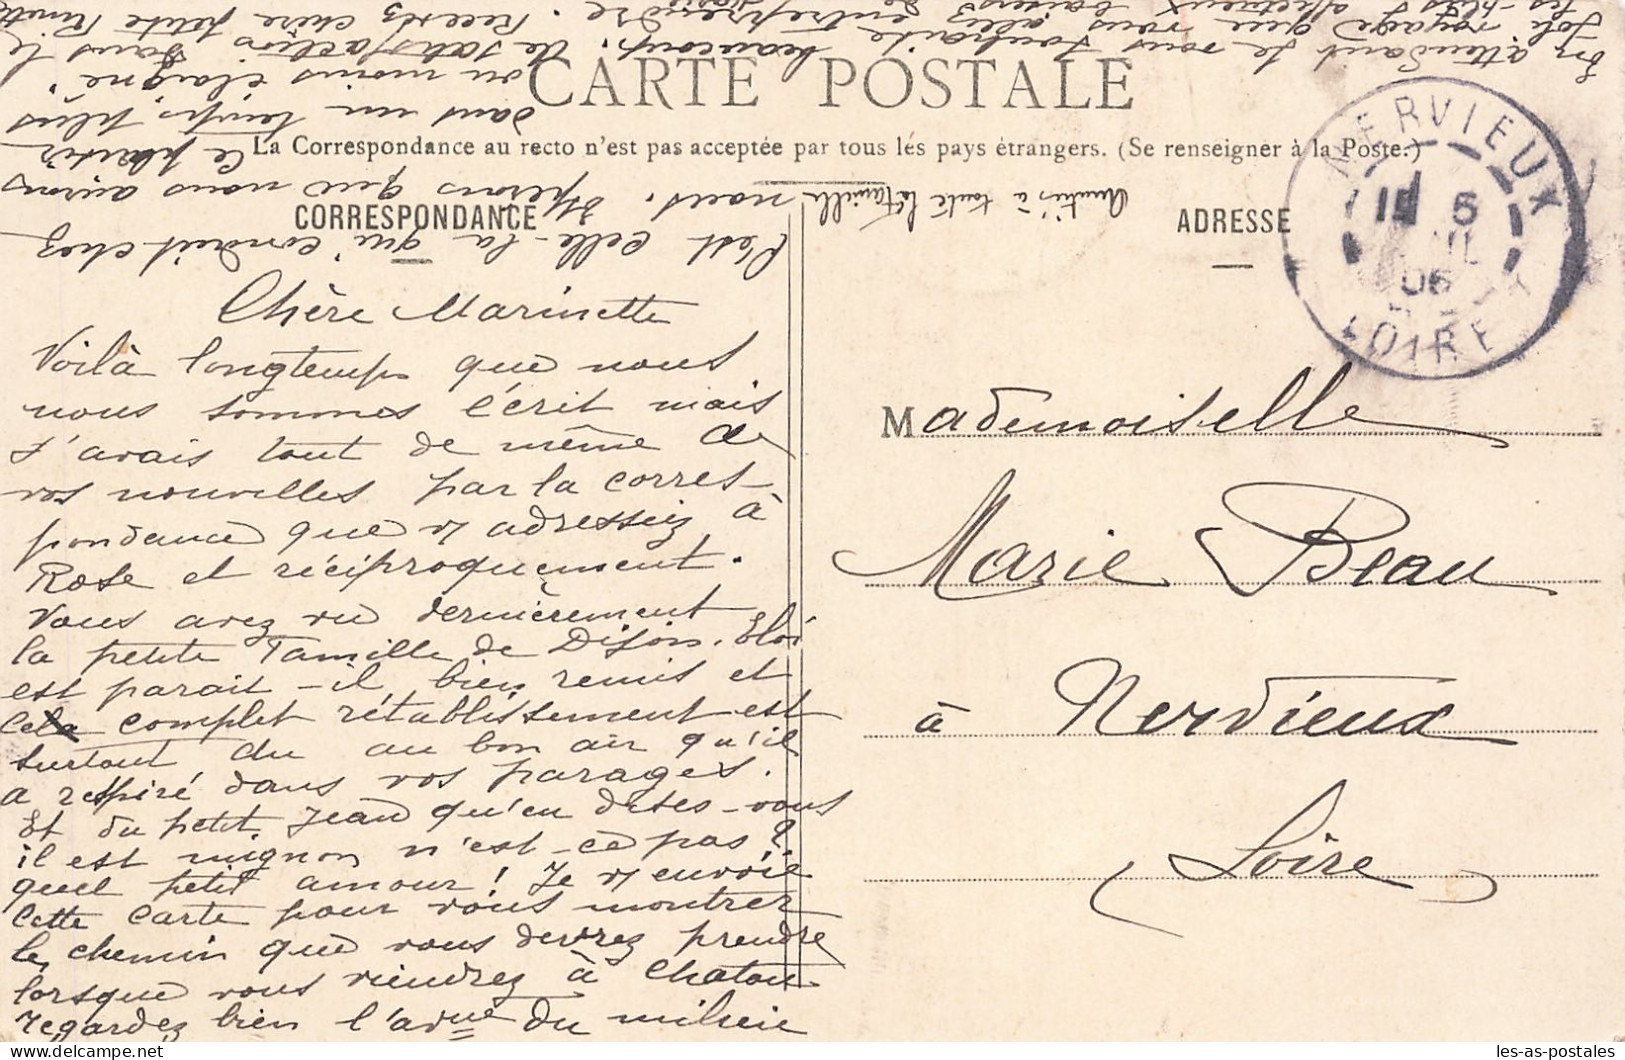 CARTE POSTALE
La Correspondance au recto n'est pas acceptée par tous lés pays étrangers. (Se renseigner à la Poste.)
CORRESPONDANCE
ADRESSE
NERVIEUX
6
06
LOIRE
Chère Marinette
Voilà longtemps que nous
nous sommes écrit mais
J'avais tout de même de
vos nouvelles par la corres-
pondance que vs adressiez à
Rose et réciproquement.
Vous avez vu dernièrement
la petite famille de Dijon. Eloi
est parait-il bien remis et
ce complet rétablissement est
surtout du au bon air qu'il
a respiré dans vos parages.
Et du petit Jean qu'en dites-vous
il est mignon n'est-ce pas?
quel petit amour! Je vs envoie
cette carte pour vous montrer
le chemin que vous devrez prendre
lorsque vous viendrez à Chatou
regardez bien l'avnue du milieu
C'est celle-la qui conduit chez
nous. Espérons que nous aurons
ce plaisir
dans un temps plus
ou moins éloigné.
En attendant je vous souhaite beaucoup de satisfaction dans le
joli voyage que vous allez entreprendre. Recevez chère petite
affectueux baisers
Amitiés à toute la famille
Mademoiselle
Marie Beau
à Nervieux
(Loire)
les-as-postales